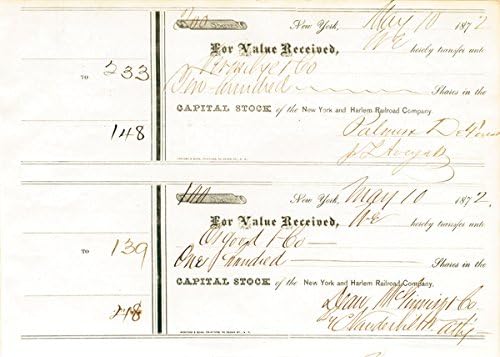 200 New York, May 10 1872
For Value Received, WE hereby transfer unto
TO 233
& Co
Two hundred Shares in the
CAPITAL STOCK of the New York and Harlem Railroad Company.
148
Palmer
100 New York, May 10 1872.
For Value Received, WE hereby transfer unto
TO 139
Osgood & Co
One hundred Shares in the
CAPITAL STOCK of the New York and Harlem Railroad Company.
148
& Co
Vanderbilt Atty